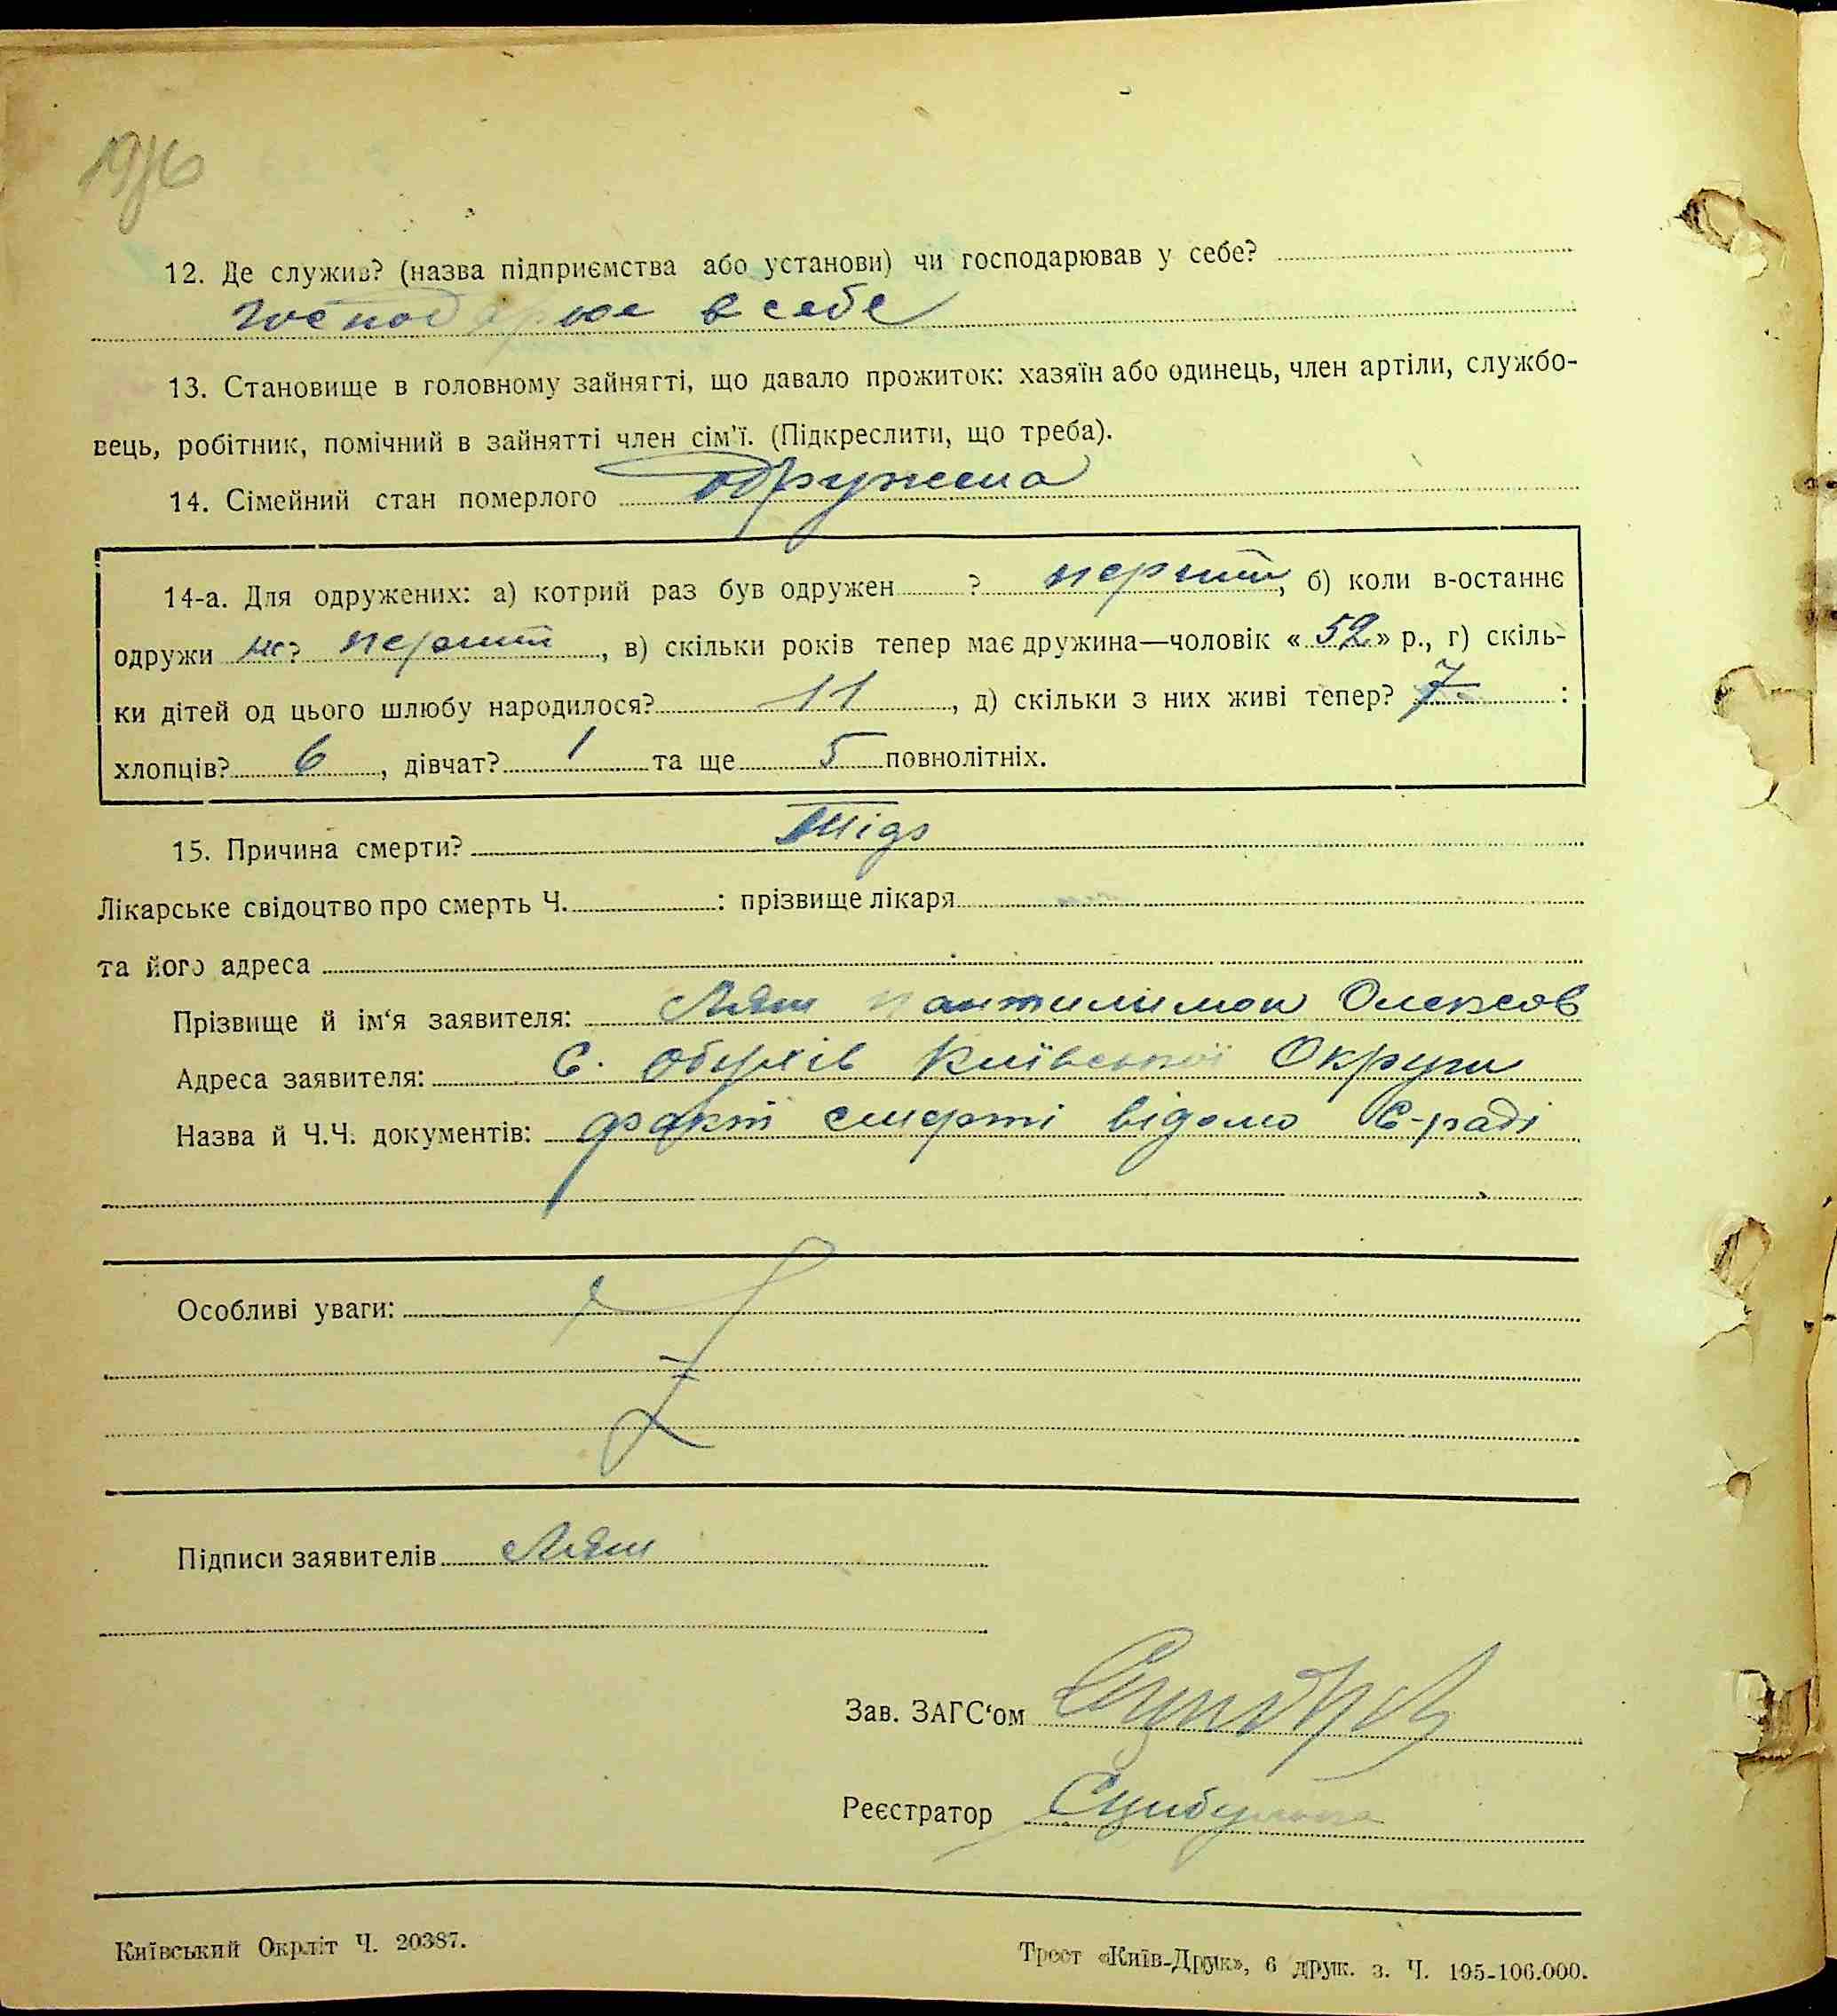 12. Де служив? (назва підприємства або установи) чи господарював у себе?
господарює в себе
13. Становище в головному зайнятті, що давало прожиток: хазяїн або одинець, член артіли, службо-
вець, робітник, помічний в зайнятті член сім'ї. (Підкреслити, що треба).
14. Сімейний стан померлого одружена
14-а. Для одружених: а) котрий раз був одружен ? перший, б) коли в-останнє
одружи перший, в) скільки років тепер має дружина—чоловік «52» р., г) скіль-
ки дітей од цього шлюбу народилося? 11, д) скільки з них живі тепер? 7 :
хлопців? 6, дівчат? 1 та ще 5 повнолітніх.
15. Причина смерти?
Лікарське свідоцтво про смерть Ч. : прізвище лікаря
та його адреса
Прізвище й ім‘я заявителя: Ляш Пантилимон Олексов
Адреса заявителя: С. Обухів Київської Округи
Назва й Ч.Ч. документів: факт смерті відомо С-раді
Особливі уваги:
Підписи заявителів Ляш
Зав. ЗАГС‘ом
Реєстратор
Київський Окрліт Ч. 20387.
Трест «Київ-Друк», 6 друк. з. Ч. 195-106.000.